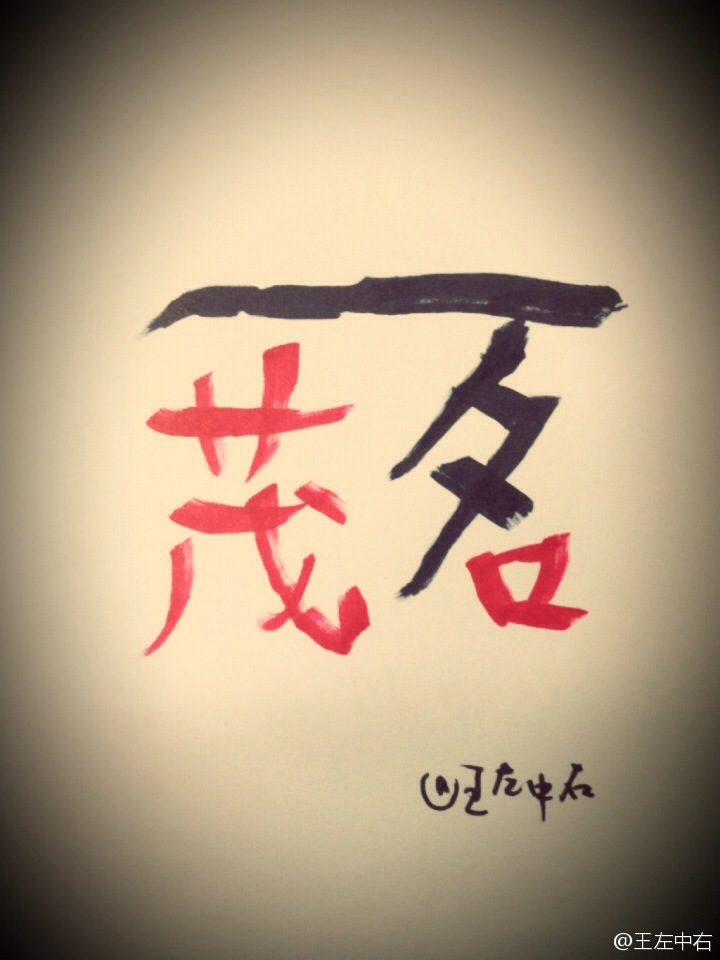 茂名
@王左中右
@王左中右